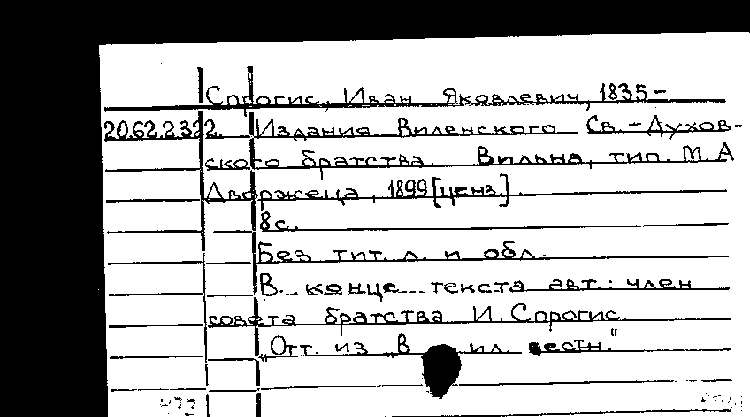 Спрогис, Иван Яковлевич, 1835-
20.62.2322. Издания Виленского Св.-Духов-
ского братства Вильна, тип. М. А
Дворжеца, 1899 [ценз.].
8с.
Без тит. л. и обл.
В конце текста авт.: член
совета братства И. Спрогис
"Отт. из „В ил. вестн."